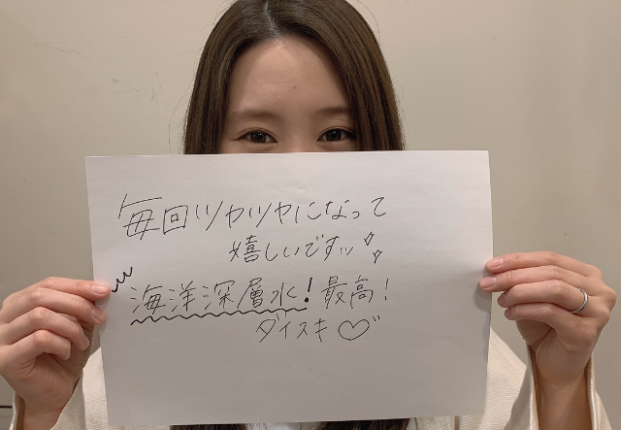 毎回ツヤツヤになって
嬉しいですッ
海洋深層水!最高!
ダイスキ♡